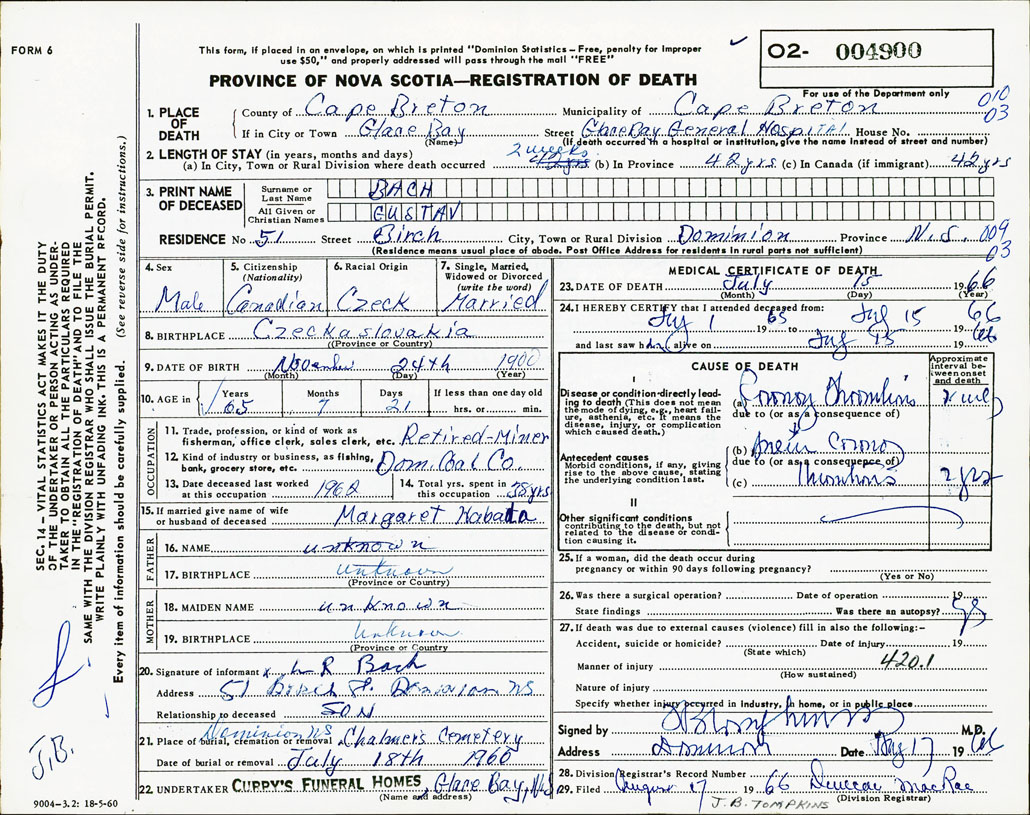 FORM 6
This form, if placed in an envelope, on which is printed "Dominion Statistics – Free, penalty for improper
use $50," and properly addressed will pass through the mail "FREE"
PROVINCE OF NOVA SCOTIA—REGISTRATION OF DEATH
02- 004900
For use of the Department only
010
03
1. PLACE OF DEATH
County of Cape Breton Municipality of Cape Breton
If in City or Town Glace Bay Street Glace Bay General Hospital House No.
(Name) (If death occurred in a hospital or institution, give the name instead of street and number)
2. LENGTH OF STAY (in years, months and days)
(a) In City, Town or Rural Division where death occurred 2 weeks (b) In Province 42 yrs (c) In Canada (if immigrant) 42 yrs
3. PRINT NAME OF DECEASED
Surname or Last Name BACH
All Given or Christian Names GUSTAV
RESIDENCE No 51 Street Birch City, Town or Rural Division Dominion Province N.S. 009
03
(Residence means usual place of abode. Post Office Address for residents in rural parts not sufficient)
4. Sex Male
5. Citizenship (Nationality) Canadian
6. Racial Origin Czeck
7. Single, Married, Widowed or Divorced (write the word) Married
8. BIRTHPLACE Czeckaslovakia
(Province or Country)
9. DATE OF BIRTH November 24th 1900
(Month) (Day) (Year)
10. AGE in Years 65 Months 7 Days 21 If less than one day old hrs. or min.
OCCUPATION
11. Trade, profession, or kind of work as fisherman, office clerk, sales clerk, etc. Retired-Miner
12. Kind of industry or business, as fishing, bank, grocery store, etc. Dom. Coal Co.
13. Date deceased last worked at this occupation 1962
14. Total yrs. spent in this occupation 38 yrs
15. If married give name of wife or husband of deceased Margaret Habada
FATHER
16. NAME unknown
17. BIRTHPLACE Unknown
(Province or Country)
MOTHER
18. MAIDEN NAME unknown
19. BIRTHPLACE Unknown
(Province or Country)
20. Signature of informant x R Bach
Address 51 Birch St. Dominion NS
Relationship to deceased SON
Dominion NS
21. Place of burial, cremation or removal Chalmers Cemetery
Date of burial or removal July 18th 1966
22. UNDERTAKER CURRY'S FUNERAL HOMES, Glace Bay, N.S
(Name and address)
MEDICAL CERTIFICATE OF DEATH
23. DATE OF DEATH July 15 1966
(Month) (Day) (Year)
24. I HEREBY CERTIFY that I attended deceased from:
July 1 1965 to July 15 1966
and last saw him alive on July 15 1966
CAUSE OF DEATH
Approximate interval between onset and death
I
Disease or condition directly leading to death (This does not mean the mode of dying, e.g., heart failure, asthenia, etc. It means the disease, injury, or complication which caused death.)
(a) Coronary Thrombosis
due to (or as a consequence of)
Antecedent causes
Morbid conditions, if any, giving rise to the above cause, stating the underlying condition last.
(b) Previous Coronary
due to (or as a consequence of)
(c) Thrombosis 2 yrs
II
Other significant conditions
contributing to the death, but not related to the disease or condition causing it.
25. If a woman, did the death occur during
pregnancy or within 90 days following pregnancy?
(Yes or No)
26. Was there a surgical operation? Date of operation 19
State findings Was there an autopsy? yes
27. If death was due to external causes (violence) fill in also the following:–
Accident, suicide or homicide? Date of injury 19
(State which)
Manner of injury 420.1
(How sustained)
Nature of injury
Specify whether injury occurred in industry, in home, or in public place
Signed by M.D.
Address Dominion Date Aug 17 1966
28. Division Registrar's Record Number
29. Filed August 17 1966 Duncan MacRae
(Division Registrar)
J.B. TOMPKINS
SEC. 14 – VITAL STATISTICS ACT MAKES IT THE DUTY
OF THE UNDERTAKER OR PERSON ACTING AS UNDER-
TAKER TO OBTAIN ALL THE PARTICULARS REQUIRED
IN THE "REGISTRATION OF DEATH" AND TO FILE THE
SAME WITH THE DIVISION REGISTRAR WHO SHALL ISSUE THE BURIAL PERMIT.
WRITE PLAINLY WITH UNFADING INK. THIS IS A PERMANENT RECORD.
Every item of information should be carefully supplied. (See reverse side for instructions.)
J.B.
9004-3.2: 18-5-60